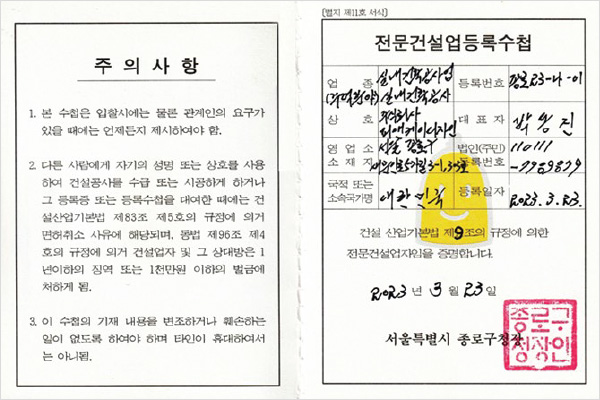 주 의 사 항
1. 본 수첩은 입찰시에는 물론 관계인의 요구가
있을 때에는 언제든지 제시하여야 함.
2. 다른 사람에게 자기의 성명 또는 상호를 사용
하여 건설공사를 수급 또는 시공하게 하거나
그 등록증 또는 등록수첩을 대여한 때에는 건
설산업기본법 제83조 제5호의 규정에 의거
면허취소 사유에 해당되며, 동법 제96조 제4
호의 규정에 의거 건설업자 및 그 상대방은 1
년이하의 징역 또는 1천만원 이하의 벌금에
처하게 됨.
3. 이 수첩의 기재 내용을 변조하거나 훼손하는
일이 없도록 하여야 하며 타인이 휴대하여서
는 아니됨.
[별지 제11호 서식]
전문건설업등록수첩
업 종
실내건축공사업
실내건축공사
등록번호
종로23-나-01
상 호
주식회사
피앤케이디자인
대 표 자
박
진
영 업 소
소 재 지
서울 종로구
법인(주민)
등록번호
110111
국적 또는
소속국가명
대한민국
등록일자
2023. 3. 23.
건설 산업기본법 제9조의 규정에 의한
전문건설업자임을 증명합니다.
2023 년 3 월 23 일
서울특별시 종로구청장
종로구
청장인